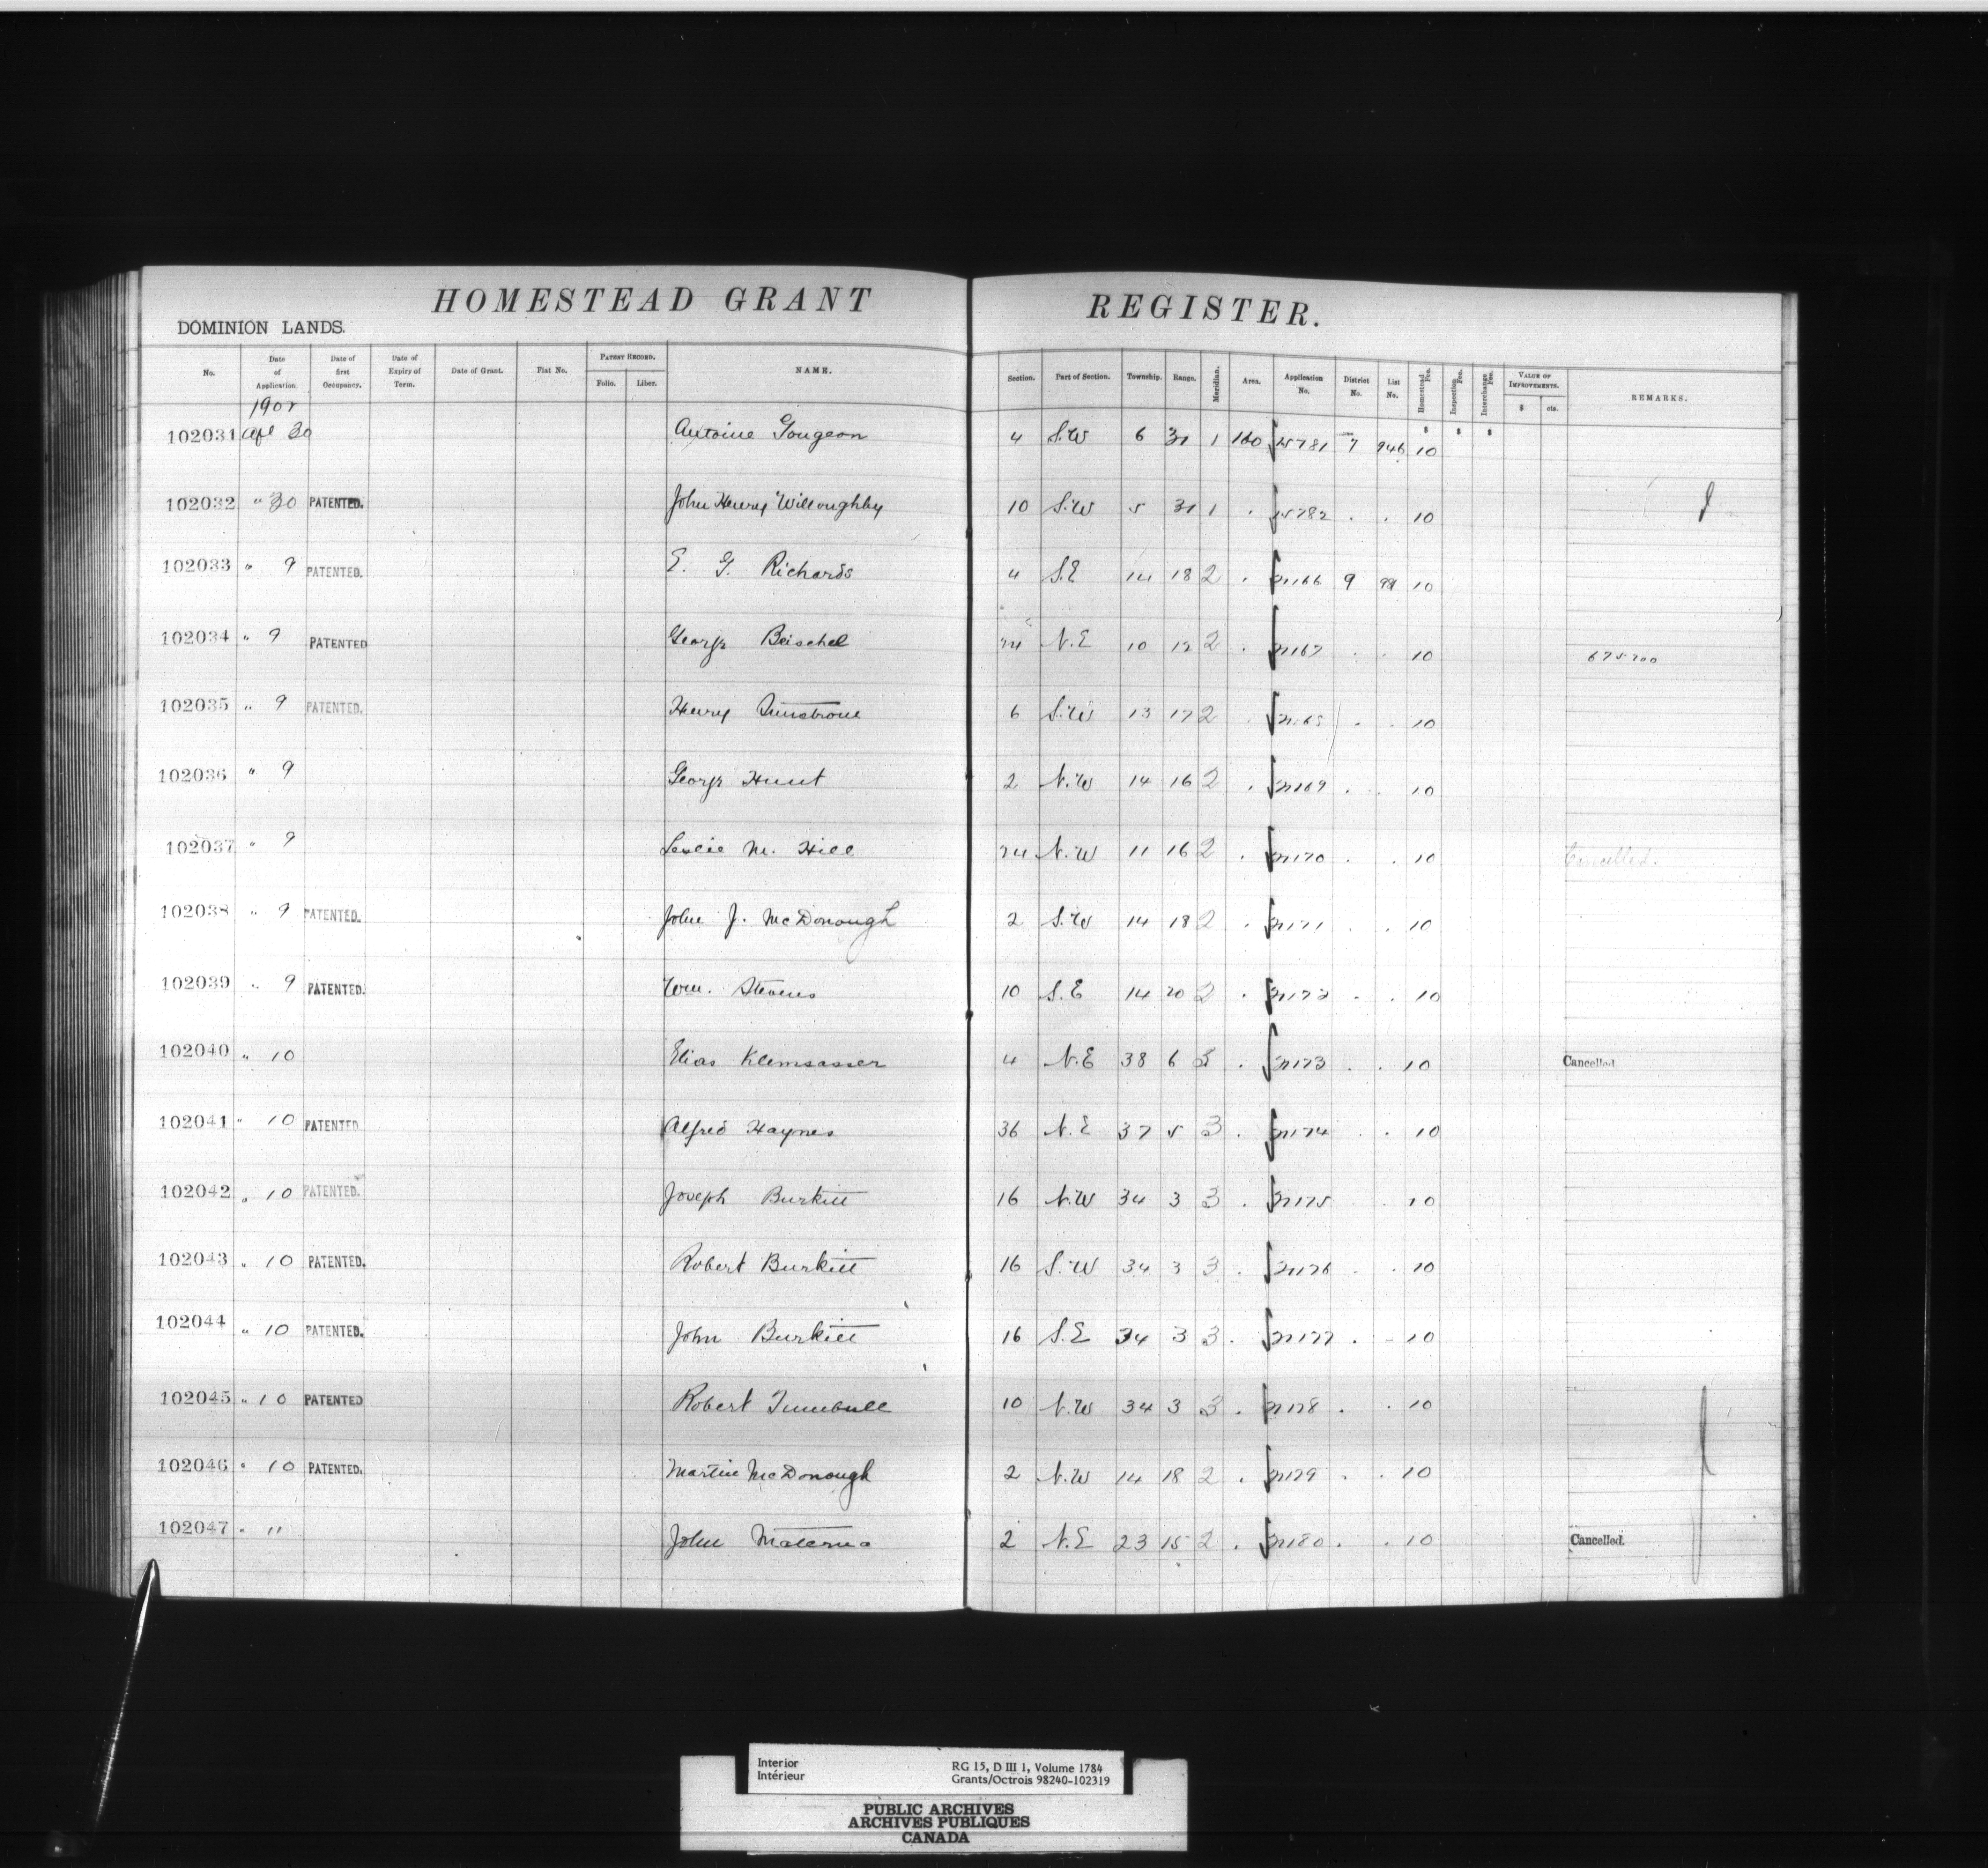 HOMESTEAD GRANT REGISTER.
DOMINION LANDS.
No. Date of Application. Date of first Occupancy. Date of Expiry of Term. Date of Grant. Fiat No. PATENT RECORD. Folio. Liber. NAME. Section. Part of Section. Township. Range. Meridian. Area. Application No. District No. List No. Homestead Fee. Inspection Fee. Interchange Fee. VALUE OF IMPROVEMENTS. $ cts. REMARKS.
$ $ $
102031 Apl 30 Antoine Gougeon 4 S.W 6 31 1 160 15781 7 946 10
102032 " 30 PATENTED. John Henry Willoughby 10 S.W 5 31 1 . 15782 . . 10
102033 " 9 PATENTED. E. G. Richards 4 S.E 14 18 2 . 21166 9 99 10
102034 " 9 PATENTED George Beischel 24 N.E 10 12 2 . 21167 . . 10 675700
102035 " 9 PATENTED. Henry 6 S.W 13 17 2 . . 10
102036 " 9 George Hunt 2 N.W 14 16 2 . 21169 . . 10
102037 " 9 Leslie M. Hill 24 N.W 11 16 2 . 21170 . . 10 Cancelled.
102038 " 9 PATENTED. John J. McDonough 2 S.W 14 18 2 . 21171 . . 10
102039 " 9 PATENTED. Wm. Stevens 10 S.E 14 20 2 . 21172 . . 10
102040 " 10 Elias Klemsasser 4 N.E 38 6 3 . 21173 . . 10 Cancelled
102041 " 10 PATENTED. Alfred Haynes 36 N.E 37 5 3 . 21174 . . 10
102042 " 10 PATENTED. Joseph Burkitt 16 N.W 34 3 3 . 21175 . . 10
102043 " 10 PATENTED. Robert Burkitt 16 S.W 34 3 3 . 21176 . . 10
102044 " 10 PATENTED. John Burkitt 16 S.E 34 3 3 . 21177 . . 10
102045 " 10 PATENTED Robert Turnbull 10 N.W 34 3 3 . 21178 . . 10
102046 " 10 PATENTED. Martin McDonough 2 N.W 14 18 2 . 21179 . . 10
102047 " 11 John Materna 2 N.E 23 15 2 . 21180 . . 10 Cancelled.
Interior
Intérieur
RG 15, D III 1, Volume 1784
Grants/Octrois 98240-102319
PUBLIC ARCHIVES
ARCHIVES PUBLIQUES
CANADA